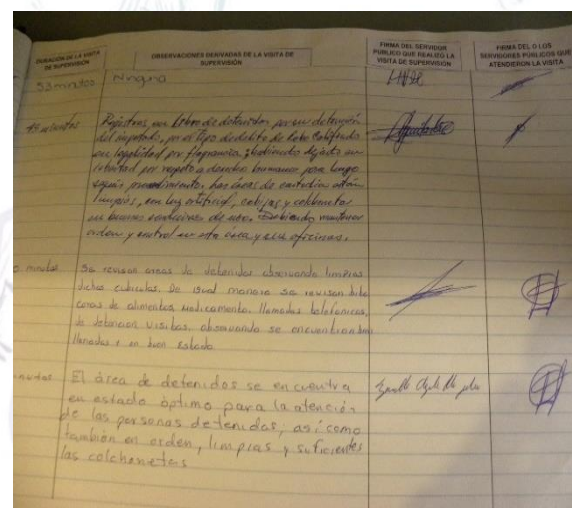 DURACIÓN DE LA VISITA DE SUPERVISIÓN
OBSERVACIONES DERIVADAS DE LA VISITA DE SUPERVISIÓN
FIRMA DEL SERVIDOR PÚBLICO QUE REALIZÓ LA VISITA DE SUPERVISIÓN
FIRMA DEL O LOS SERVIDORES PÚBLICOS QUE ATENDIERON LA VISITA
53 minutos
Ninguna
minutos
Registros, en Libro de detenidos por su detención
del imputado, por el tipo de delito de Robo Calificado
en legalidad por flagrancia,
integridad por respeto a derechos humanos para luego
seguir procedimiento. Las áreas de custodia están
limpias, con luz artificial, cobijas y colchonetas
en buenas condiciones de uso. Debiendo mantener
orden y control en esta área y sus oficinas.
minutos
Se revisan areas de detenidos observando limpias
dichas cubiculos. De igual manera se revisan
de alimentos medicamento. llamadas telefonicas,
de detencion visitas. observando se encuentran
llenadas y en buen estado.
El área de detenidos se encuentra
en estado óptimo para la atención
de las personas detenidas, así como
también en orden, limpias y suficientes
las colchonetas